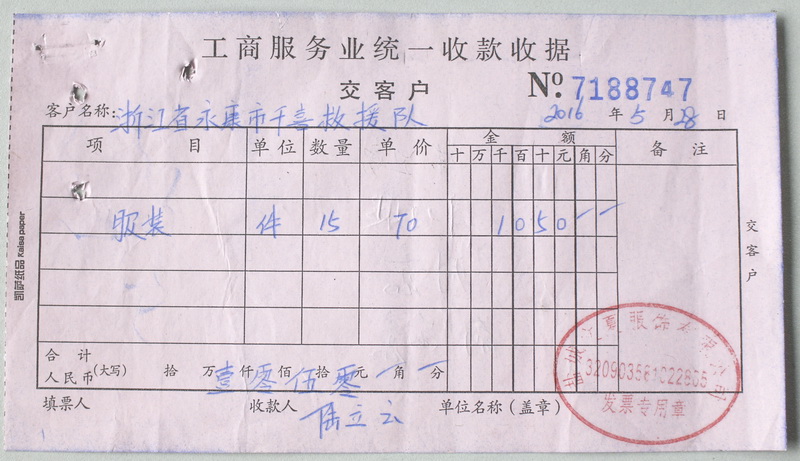 工商服务业统一收款收据
交客户
№ 7188747
客户名称: 浙江省永康市千喜救援队 2016 年 5 月 28 日
项 目 单位 数量 单价 金 额 备注
十 万 千 百 十 元 角 分
服装 件 15 70 1 0 5 0 — —
交客户
凯萨纸品 Kaisa paper
合计
人民币(大写) 拾 万 壹 仟 零 佰 伍 拾 零 元 — 角 — 分
填票人 收款人 陆立云 单位名称(盖章)
夏服饰有限公司
发票专用章